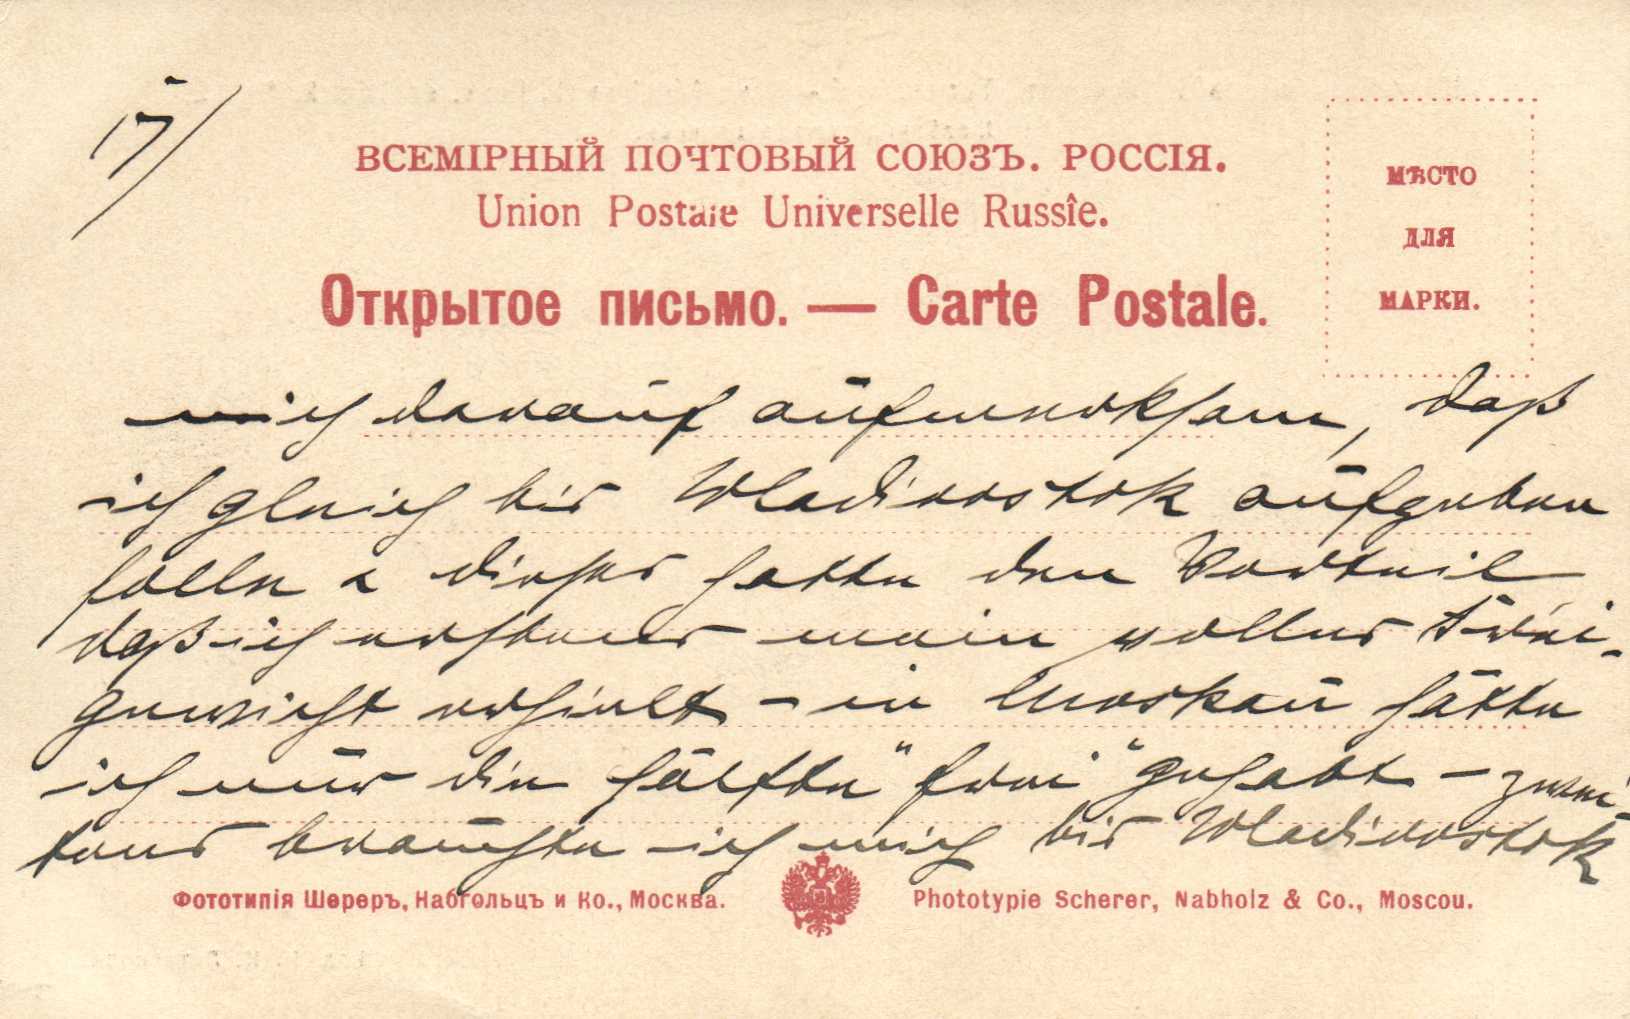 17/
ВСЕМІРНЫЙ ПОЧТОВЫЙ СОЮЗЪ. РОССІЯ.
Union Postale Universelle Russîe.
МѢСТО
ДЛЯ
МАРКИ.
Открытое письмо. — Carte Postale.
mich darauf aufmerksam, daß
ich gleich bis Wladivostok aufgeben
solle & dieses hatte den Vorteil
daß ich erstens mein volles Frei-
gewicht erhielt – in Moskau hätte
ich nur die hälfte "frei" gehabt – zwei-
tens brauchte ich mich bis Wladivostok
Фототипія Шереръ, Набгольцъ и Ко., Москва.
Phototypie Scherer, Nabholz & Co., Moscou.